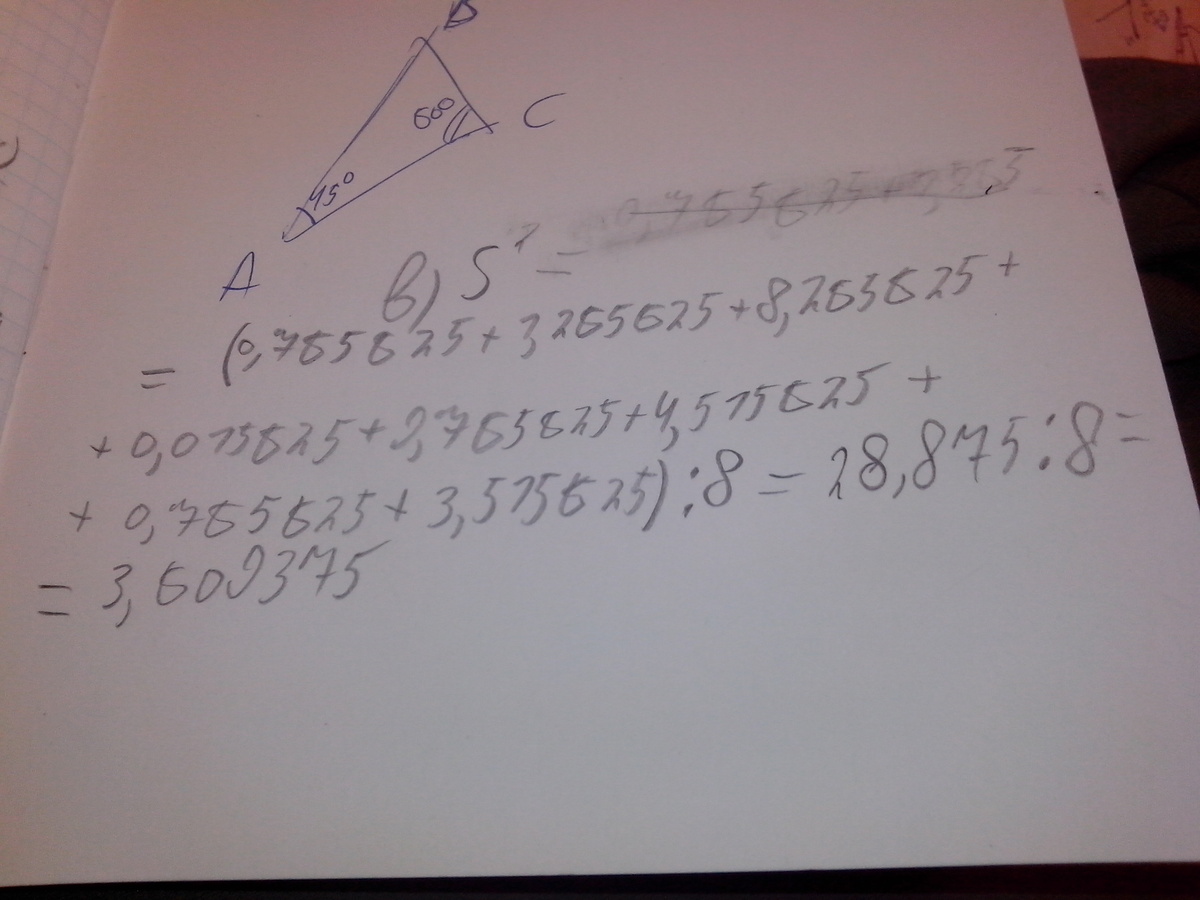 B
60°
C
45°
A
в) S² =
= (0,765625 + 3 265625 + 8,265625 +
+ 0,015625 + 9,765625 + 4,515625 +
+ 0,765625 + 3,515625) : 8 = 28,875 : 8 =
= 3,609375